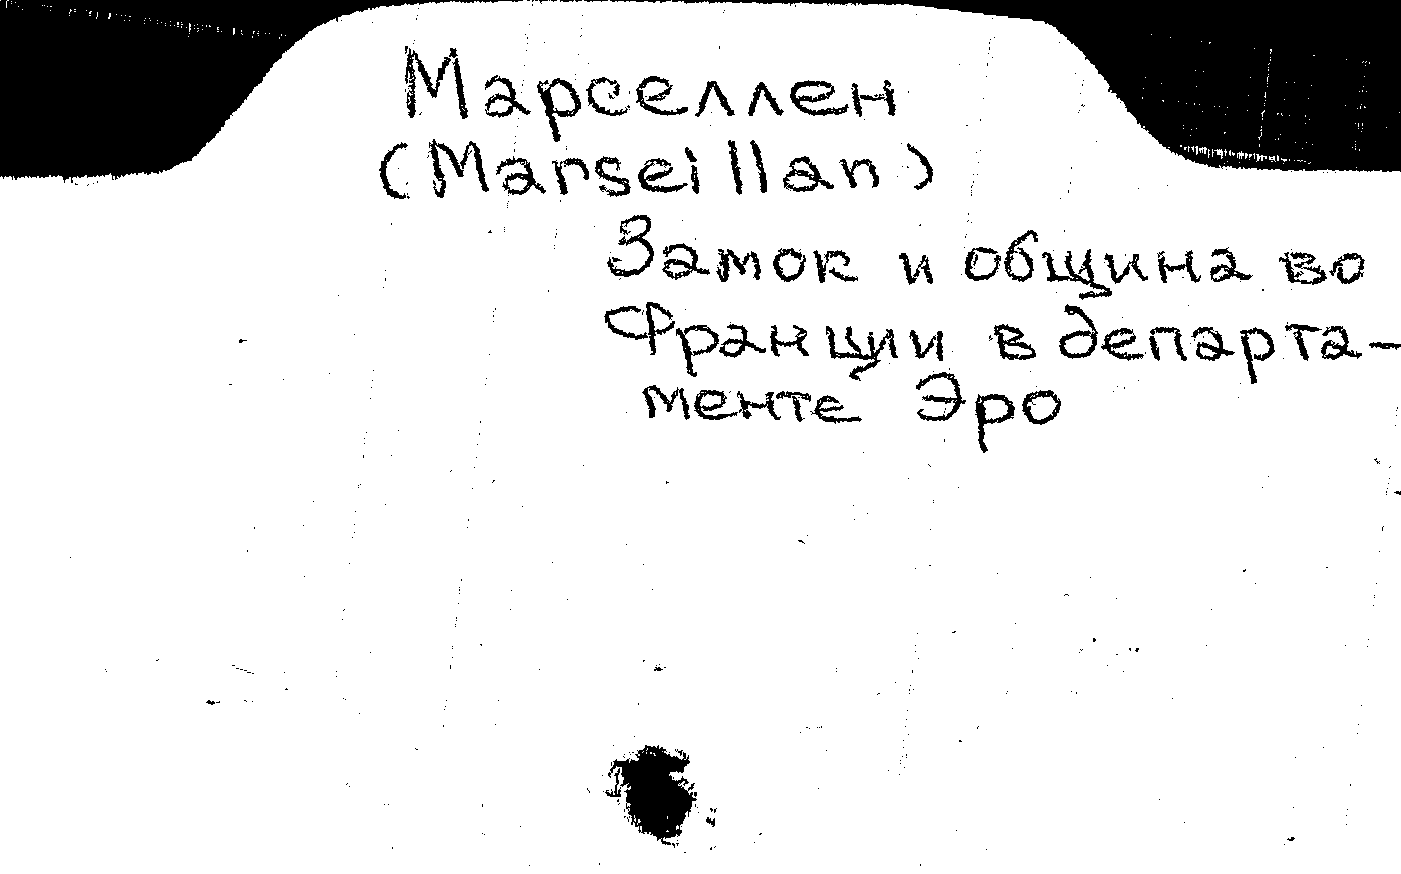 Марселлен
(Marseillan)
Замок и община во
Франции в департа-
менте Эро